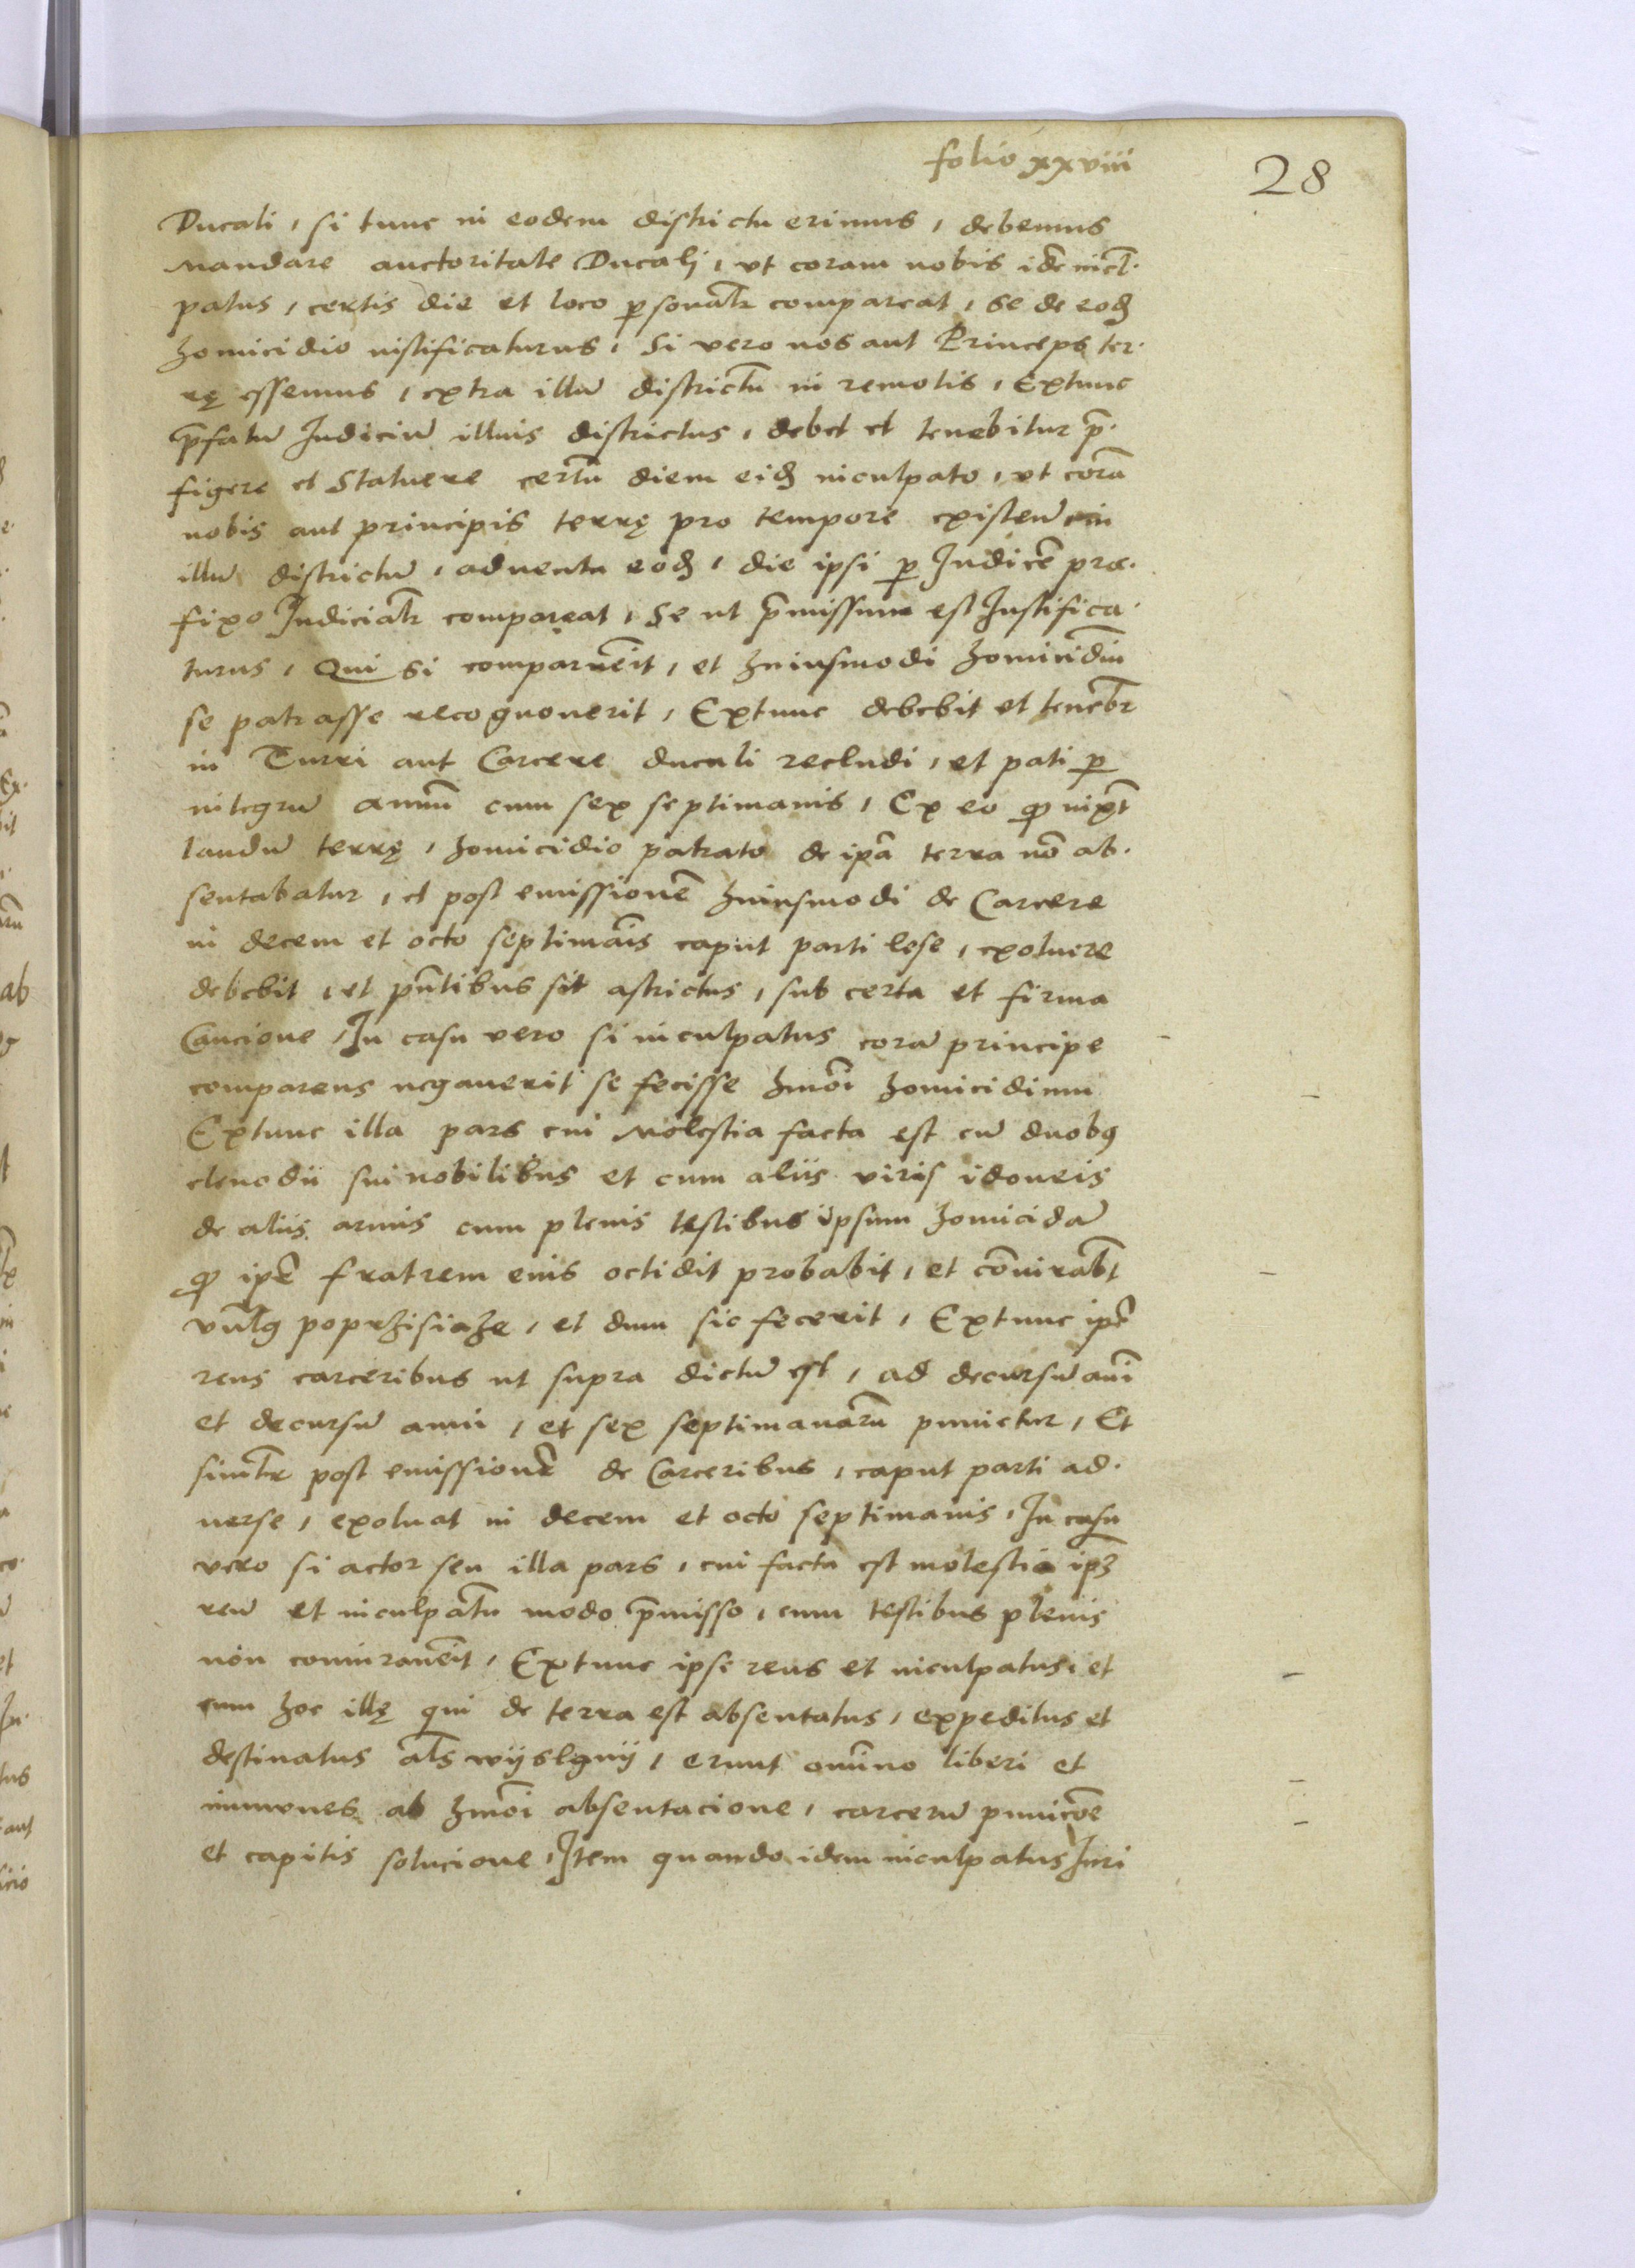 folio xxviii
28
Ducali, si tunc in eodem districtu erimus, debemus
mandare auctoritate Ducalj, vt coram nobis idē incl·
patus, certis die et loco ꝑsonalr̄ compareat, se de eodꝫ
homicidio iustificaturus, Si vero nos aut Princeps ter·
rę essemus, extra illū districtū in remotis, Extunc
p̄fatū Judiciū illius districtus, debet et tenebitur p̄·
figere et Statuere certū diem eidꝫ inculpato, vt corā
nobis aut principis terrę pro tempore existen̄ in
illū districtū, aduentu eodꝫ, die ipsi ꝑ Judicē præ·
fixo Judicialr̄ compareat, Se ut p̄missum est Justifica·
turus, Qui si comparuēit, et huiusmodi homicidiū
se patrasse recognouerit, Extunc debebit et tenebr̄
in Turri aut Carcere ducali recludi, et pati ꝑ
integrū annū cum sex septimanis, Ex eo ꝙ iuxt̄
laudū terrę, homicidio patrato de ipā terra nō ab·
sentabatur, et post emissionē huiusmodi de Carcere
in decem et octo septimāis caput parti lese, exoluere
debebit, et pn̄tibus sit astrictus, sub certa et firma
Caucione, In casu vero si inculpatus corā principe
comparens negauerit se fecisse hmōi homicidium
Extunc illa pars cui molestia facta est cū duobꝰ
clenodii sui nobilibus et cum aliis viris idoneis
de aliis armis cum plenis testibus ipsum homicidā
ꝙ ipē fratrem eius occidit probabit, et cōiurabt̄
vulgꝰ poprzisiaze, et dum sic fecerit, Extunc ipē
reus carceribus ut supra dictū est, ad decursū anī
et decursū anni, et sex septimanarū punietur, Et
similr̄ post emissionē de Carceribus, caput parti ad·
uerse, exoluat in decem et octo septimanis, In casu
vero si actor seu illa pars, cui facta est molestia ip̄ꝫ
reū et inculpatū modo p̄misso, cum testibus plenis
non coniurauēit, Extunc ipse reus et inculpatus, et
cum hoc illę qui de terra est absentatus, expeditus et
destinatus al̄s wyslgnij, erunt om̄ino liberi et
immunes ab hmōi absentacione, carcerū punicōe
et capitis solucione, Item quando idem inculpatus Juri